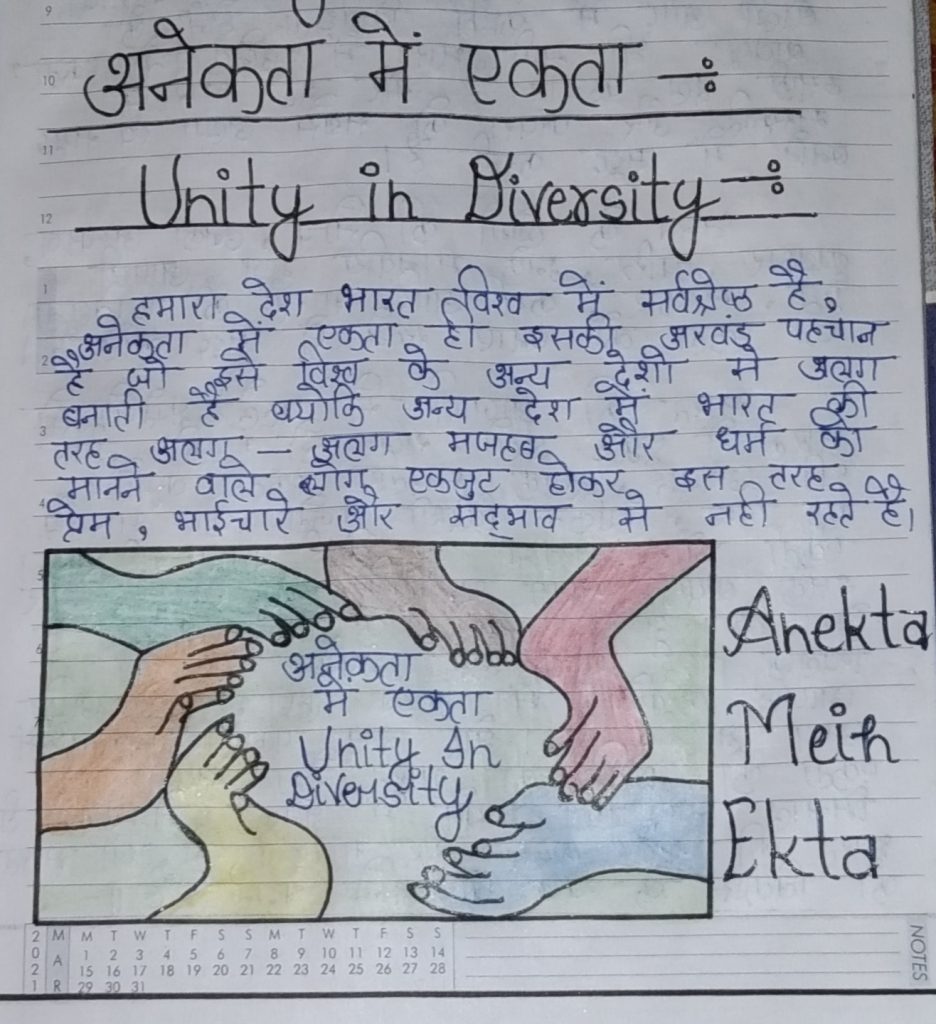 9
अनेकता में एकता -÷
10
11
Unity in Diversity -÷
12
1
हमारा देश भारत विश्व में सर्वश्रेष्ठ है,
अनेकता में एकता ही इसकी अखंड पहचान
2
है जो इसे विश्व के अन्य देशो से अलग
बनाती है क्योकि अन्य देश में भारत की
3
तरह अलग - अलग मजहब और धर्म को
मानने वाले लोग एकजुट होकर इस तरह
4
प्रेम, भाईचारे और सद्भाव से नही रहते है।
5
6
अनेकता
में एकता
Unity In
Diversity
Anekta
Mein
Ekta
2021 MAR
M T W T F S S M T W T F S S
1 2 3 4 5 6 7 8 9 10 11 12 13 14
15 16 17 18 19 20 21 22 23 24 25 26 27 28
29 30 31
NOTES